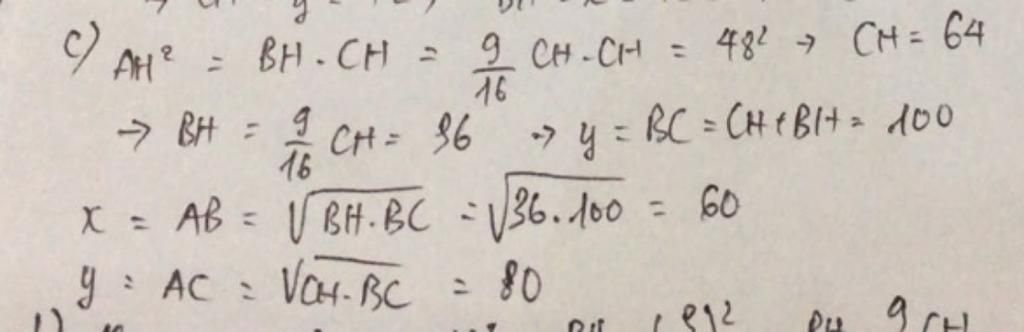 c) AH² = BH . CH = 9/16 CH . CH = 48² → CH = 64
→ BH = 9/16 CH = 36 → y = BC = CH + BH = 100
x = AB = √BH.BC = √36.100 = 60
y = AC = √CH.BC = 80